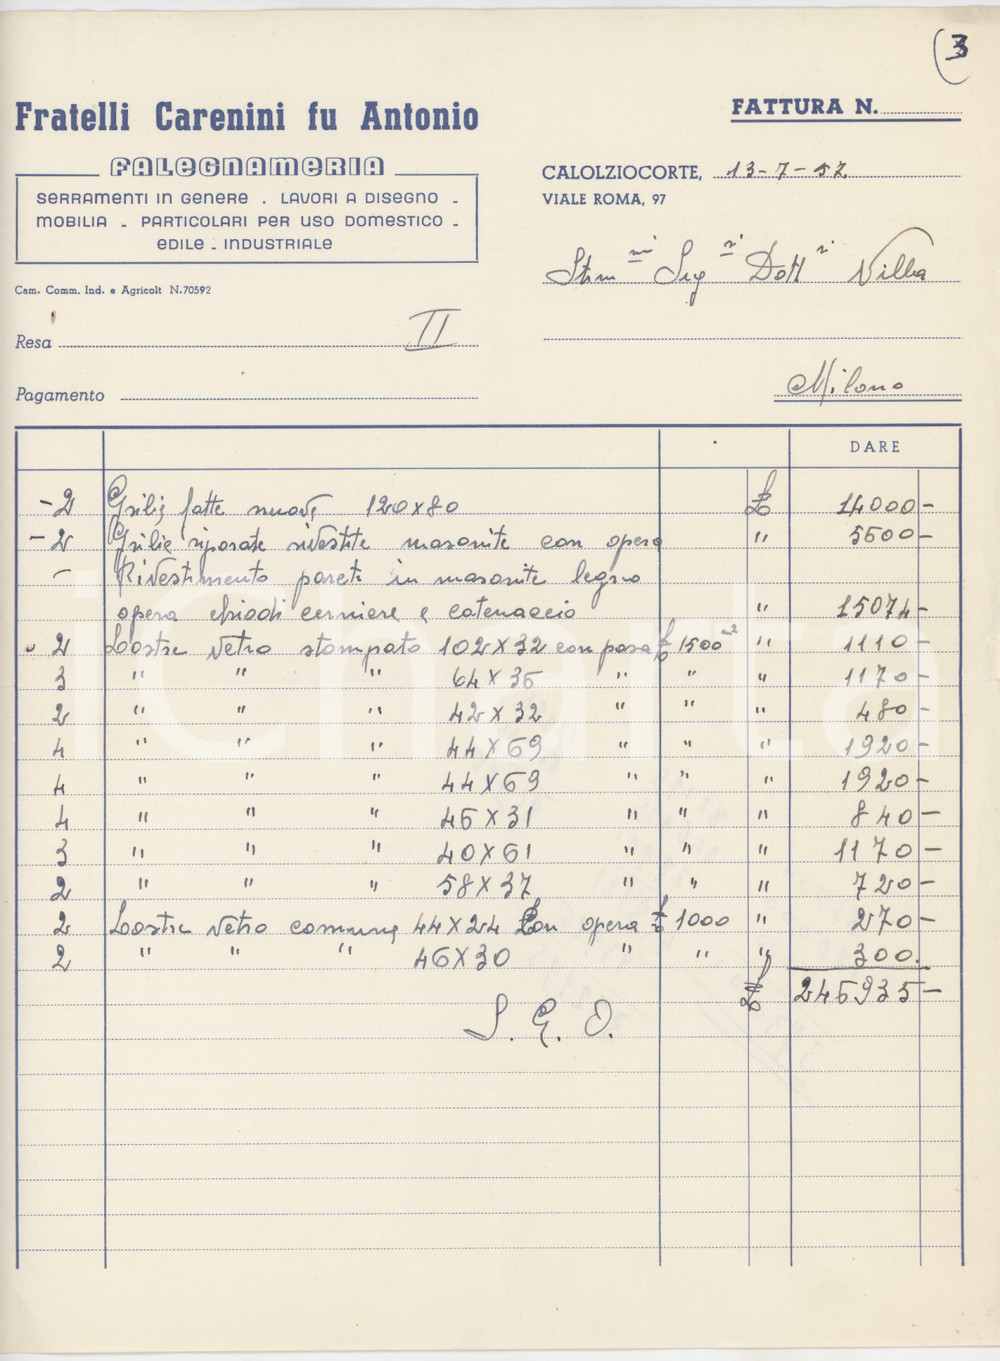 3
Fratelli Carenini fu Antonio
FALEGNAMERIA
SERRAMENTI IN GENERE . LAVORI A DISEGNO -
MOBILIA - PARTICOLARI PER USO DOMESTICO -
EDILE - INDUSTRIALE
Cam. Comm. Ind. e Agricolt N.70592
FATTURA N.
CALOLZIOCORTE, 13-7-57
VIALE ROMA, 97
Stim mi Sig r. Dott r. Villa
Resa II
Pagamento
Milano
DARE
-2 Grilie fatte nuove 120x80 £ 14000-
-2 Grilie riparate rivestite masonite con opera " 5500-
- Rivestimento pareti in masonite legno
opera chiodi cerniere e catenaccio " 15074-
2 Lastre vetro stampato 102x32 con posa £ 1500 m2 " 1110-
3 " " " 64x35 " " " 1170-
2 " " " 42x32 " " " 480-
4 " " " 44x69 " " " 1920-
4 " " " 44x69 " " " 1920-
4 " " " 45x31 " " " 840-
3 " " " 40x61 " " " 1170-
2 " " " 58x37 " " " 720-
2 Lastre vetro comune 44x24 Con opera £ 1000 " 270-
2 " " " 46x30 " " " 300.
£ 245935-
S. E. O.
iCharta